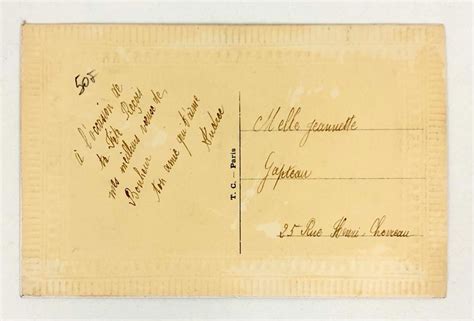 50F
à l'occasion de
ta Fête Reçois
mes meilleurs vœux de
Bonheur
ton amie qui t'aime
T. C. - Paris
Melle Jeannette
25 Rue Henri-Chevreau